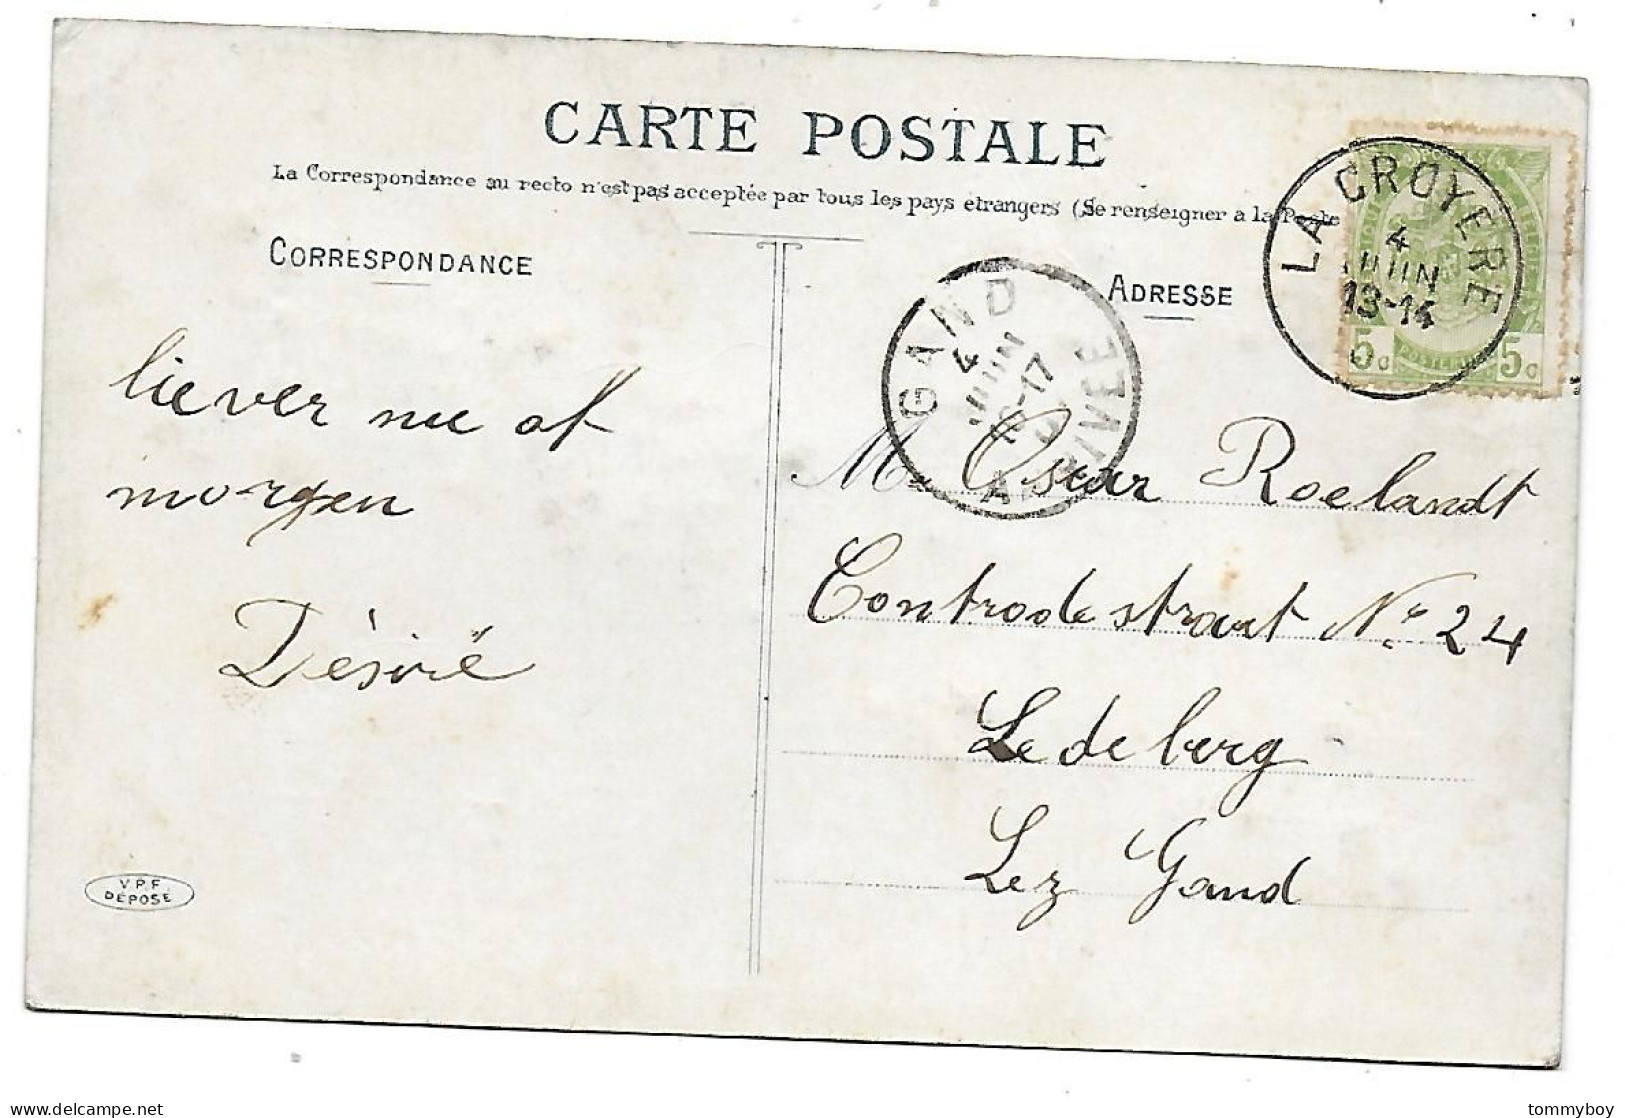 CARTE POSTALE
La Correspondance au recto n'est pas acceptée par tous les pays etrangers (Se renseigner a la Poste
CORRESPONDANCE
ADRESSE
LA CROYERE
4
JUIN
13-14
5c POSTE 5c
GAND
4
JUIN
-17
ARRIVEE
liever nu at
morgen
Désiré
Mr Oscar Roelandt
Controdestraat No 24
Ledeberg
Lez Gand
V.P.F.
DÉPOSÉ
tommyboy